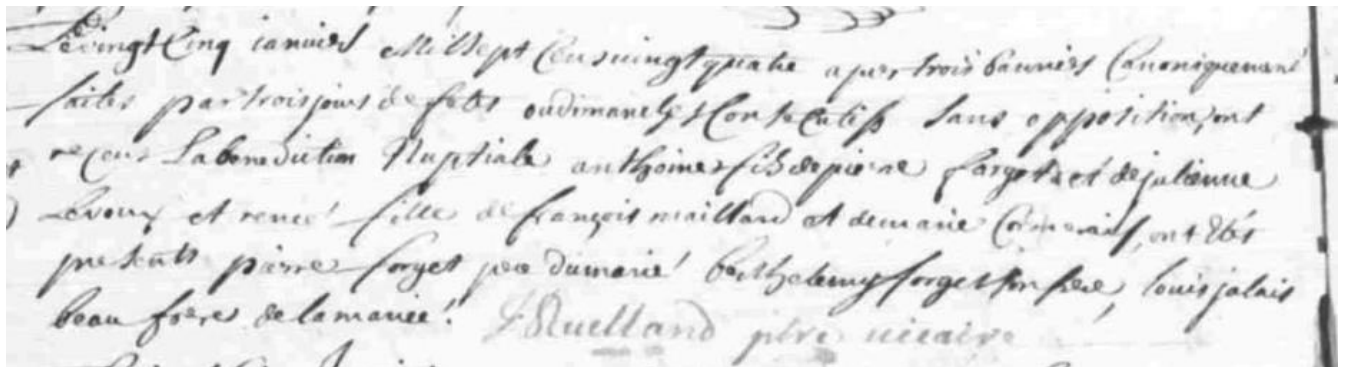 Le vingt Cinq ianvier Mil sept Cens vingt quatre apres trois bannies Canoniquement
faites par trois jours de fetes ou dimanches Consecutifs sans opposition, ont
reçeus La benediction Nuptiale anthoine fils de pierre forget et de julienne
Levoux et renée fille de françois maillard et de marie Cormerais, ont Etés
presents pierre forget pere du marié berthelemy forget son frere, louis jalais
beau frere de la mariée. J Ruelland ptre vicaire